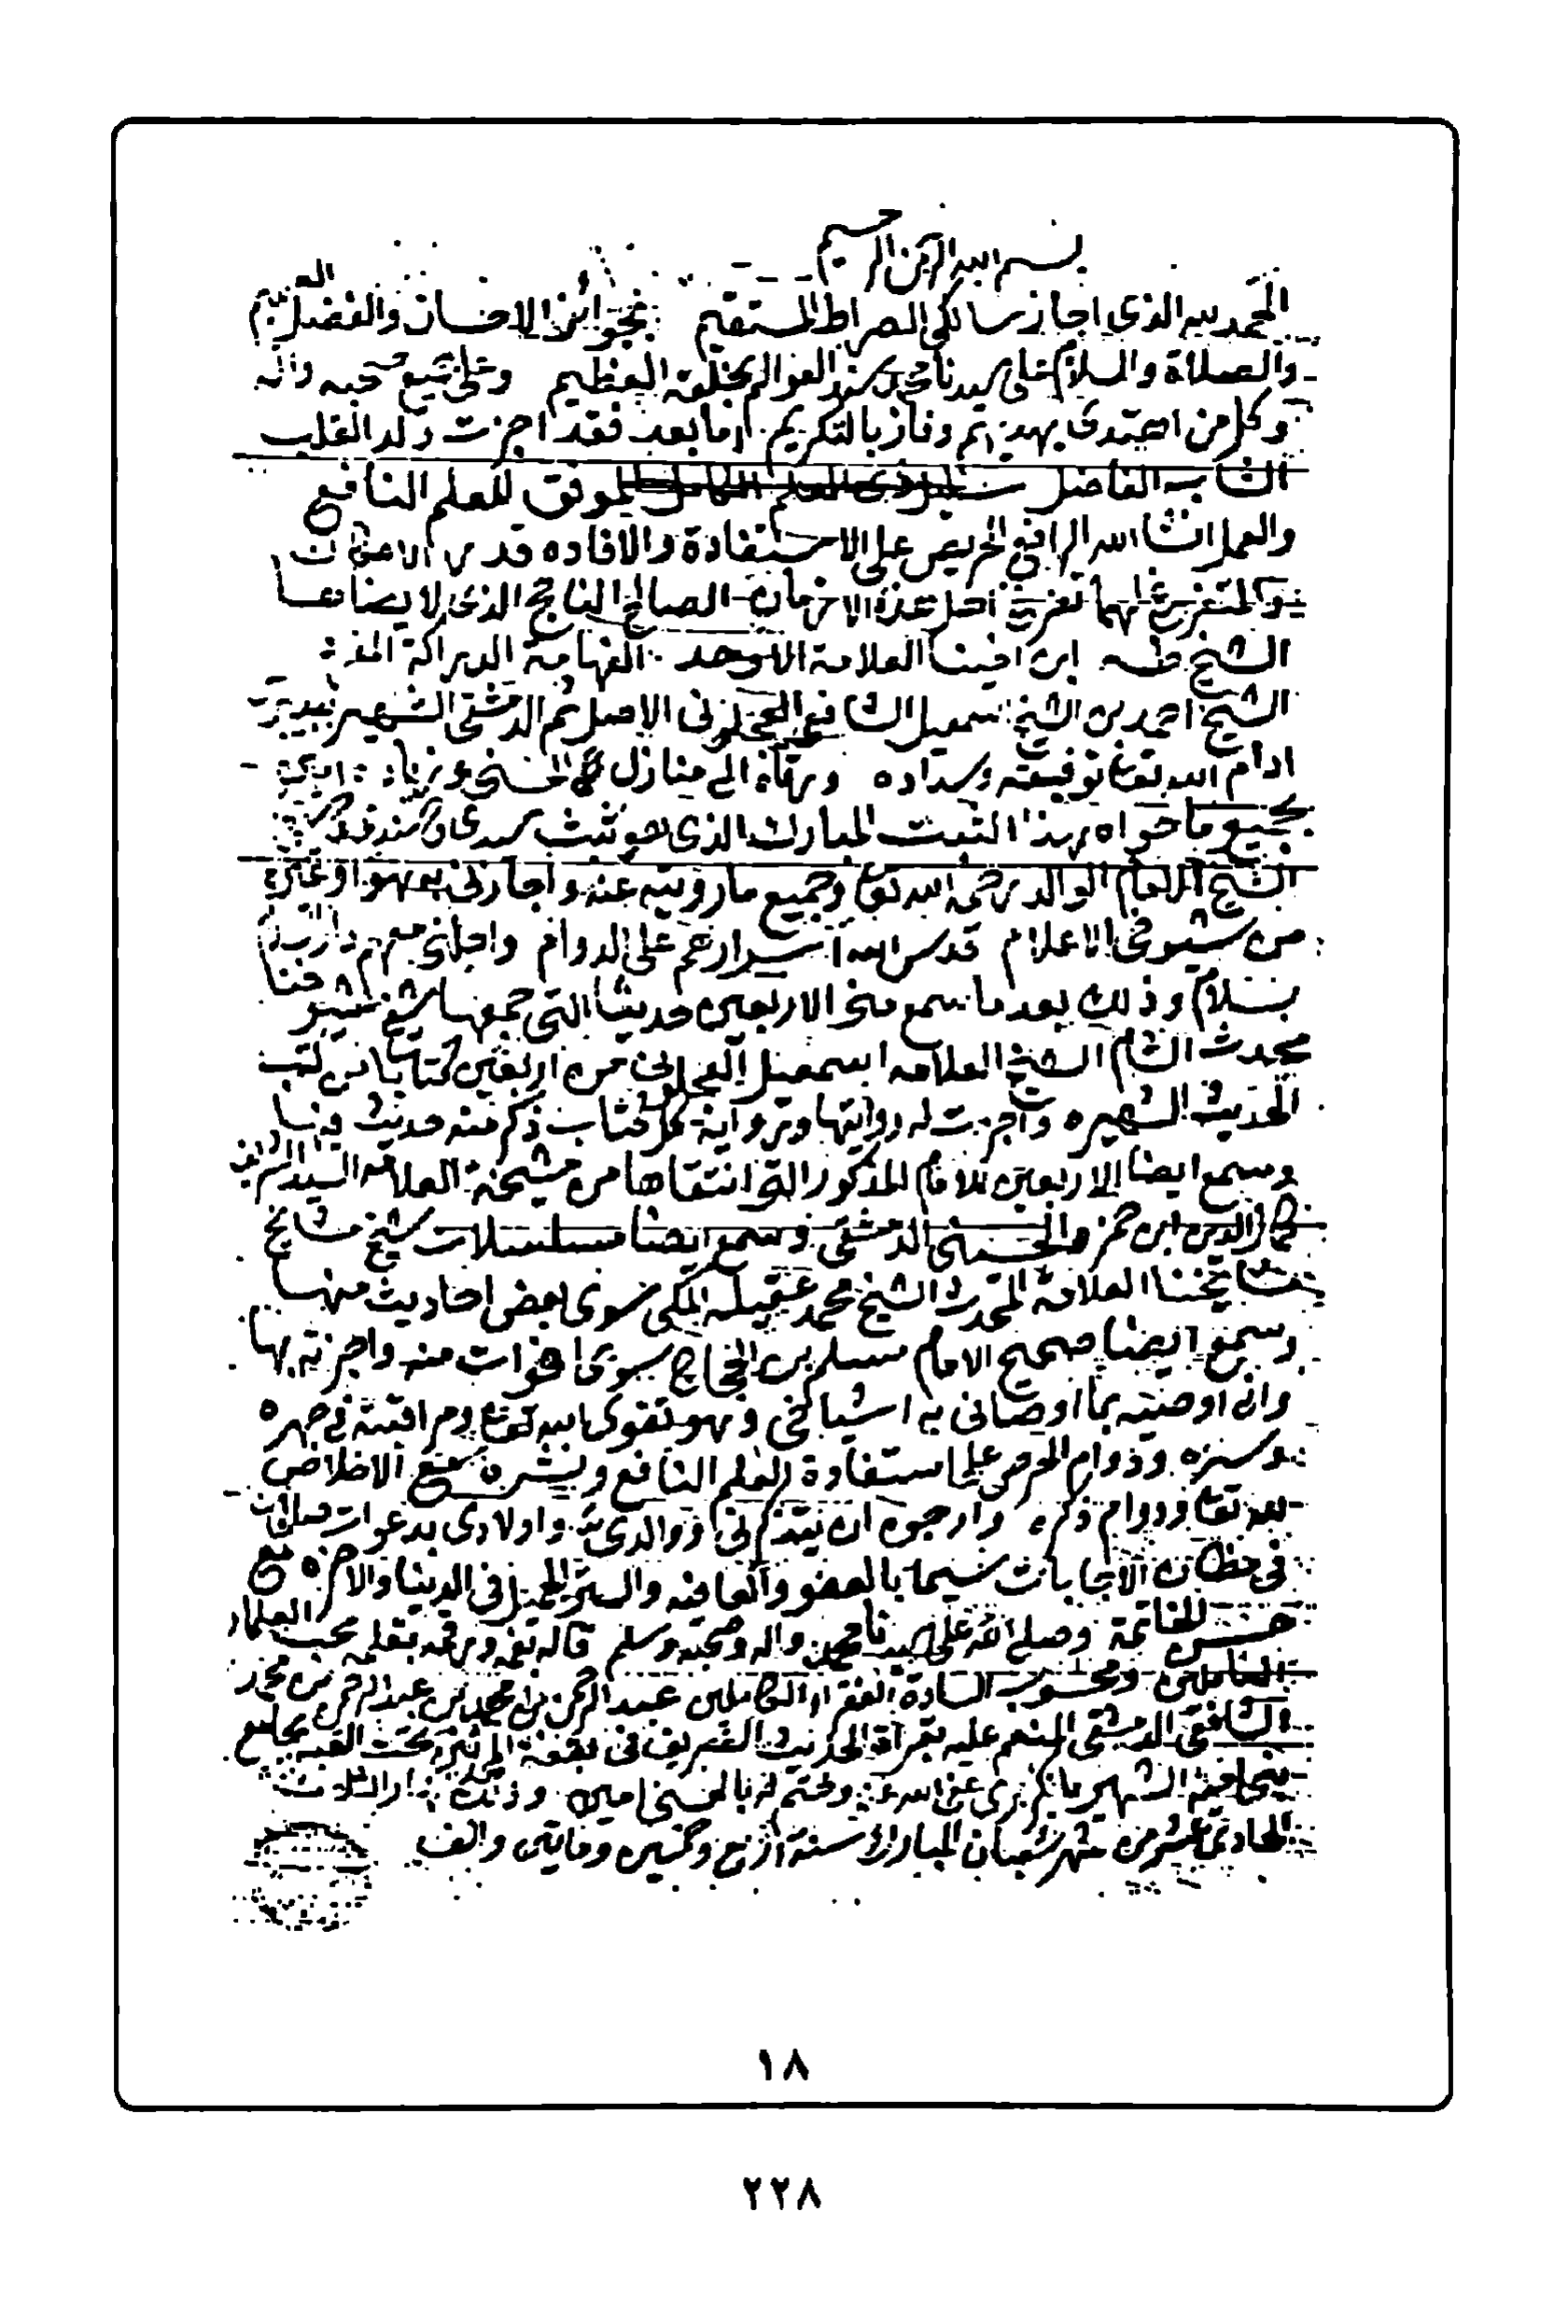 بسم الله الرحمن الرحيم
الحمد لله الذي اجاز سالكي الصراط المستقيم بجوائز الاحسان والفضل العميم
والصلاة والسلام على سيدنا محمد سند العوالم بخلقه العظيم وعلى جميع صحبه واله
وكل من اهتدى بهديهم وفاز بالتكريم اما بعد فقد اجزت ولد القلب
الشاب الفاضل الموفق للعلم النافع
والعمل انشا الله الرافع الحريص على الاستفادة والافاده
اهل هذه الازمان الصالح الناجح الذي
الشيخ طه ابن اخينا العلامة الاوحد الفهامة الدراكة
الشيخ احمد بن الشيخ اسمعيل الشافعي العجلوني الاصل ثم الدمشقي الشهير
ادام الله تعالى توفيقه وسداده ورقاه الى منازل الحسنى وزياده
بجميع ما حواه هذا الثبت المبارك الذي هو ثبت سيدي وسندي
الشيخ الامام الوالد رحمه الله تعالى وجميع ما رويته عنه واجازني به هو او غيره
من شيوخي الاعلام قدس الله اسرارهم على الدوام واحلني معهم دار السلام
بسلام وذلك بعد ما سمع مني الاربعين حديثا التي جمعها شيخ شيوخنا
محدث الشام الشيخ العلامه اسمعيل العجلوني من اربعين كتابا من كتب
الحديث الشهيره واجزت له روايتها ورواية كل كتاب ذكر منه حديث فيها
وسمع ايضا الاربعين للامام المذكور التي انتقاها من مشيخة العلامه السيد الشريف
كمال الدين ابن حمزه الحسيني الدمشقي وسمع ايضا مسلسلات شيخ مشايخ
مشايخنا العلامة المحدث الشيخ محمد عقيله المكي سوى بعض احاديث منها
وسمع ايضا صحيح الامام مسلم بن الحجاج سوى افوات منه واجزته بها
واني اوصيه بما اوصاني به اشياخي وهو تقوى الله تعالى ومراقبته في جهره
وسره ودوام الحرص على استفادة العلم النافع ونشره مع الاخلاص
لله تعالى ودوام ذكره وارجوه ان يتذكرني ووالدي واولادي بدعوات صالحات
في مظان الاجابات سيما بالعفو والعافيه والستر الجميل في الدنيا والاخره مع
حسن الخاتمة وصلى الله على سيدنا محمد واله وصحبه وسلم قاله بفمه ورقمه بقلمه محب العلماء
العاملين ومحسوب السادة الفقراء الكاملين عبد الرحمن بن محمد بن عبد الرحمن بن محمد
الشافعي الدمشقي المنعم عليه بقرآة الحديث الشريف في بقعة المدرس تحت القبه بجامع
بني امية الشهير بالكزبري عفى الله عنه وختم له بالحسنى امين وذلك نهار الثلاث
الحادي عشر من شهر شعبان المبارك سنة اربع وخمسين وماتين والف
١٨
٢٢٨